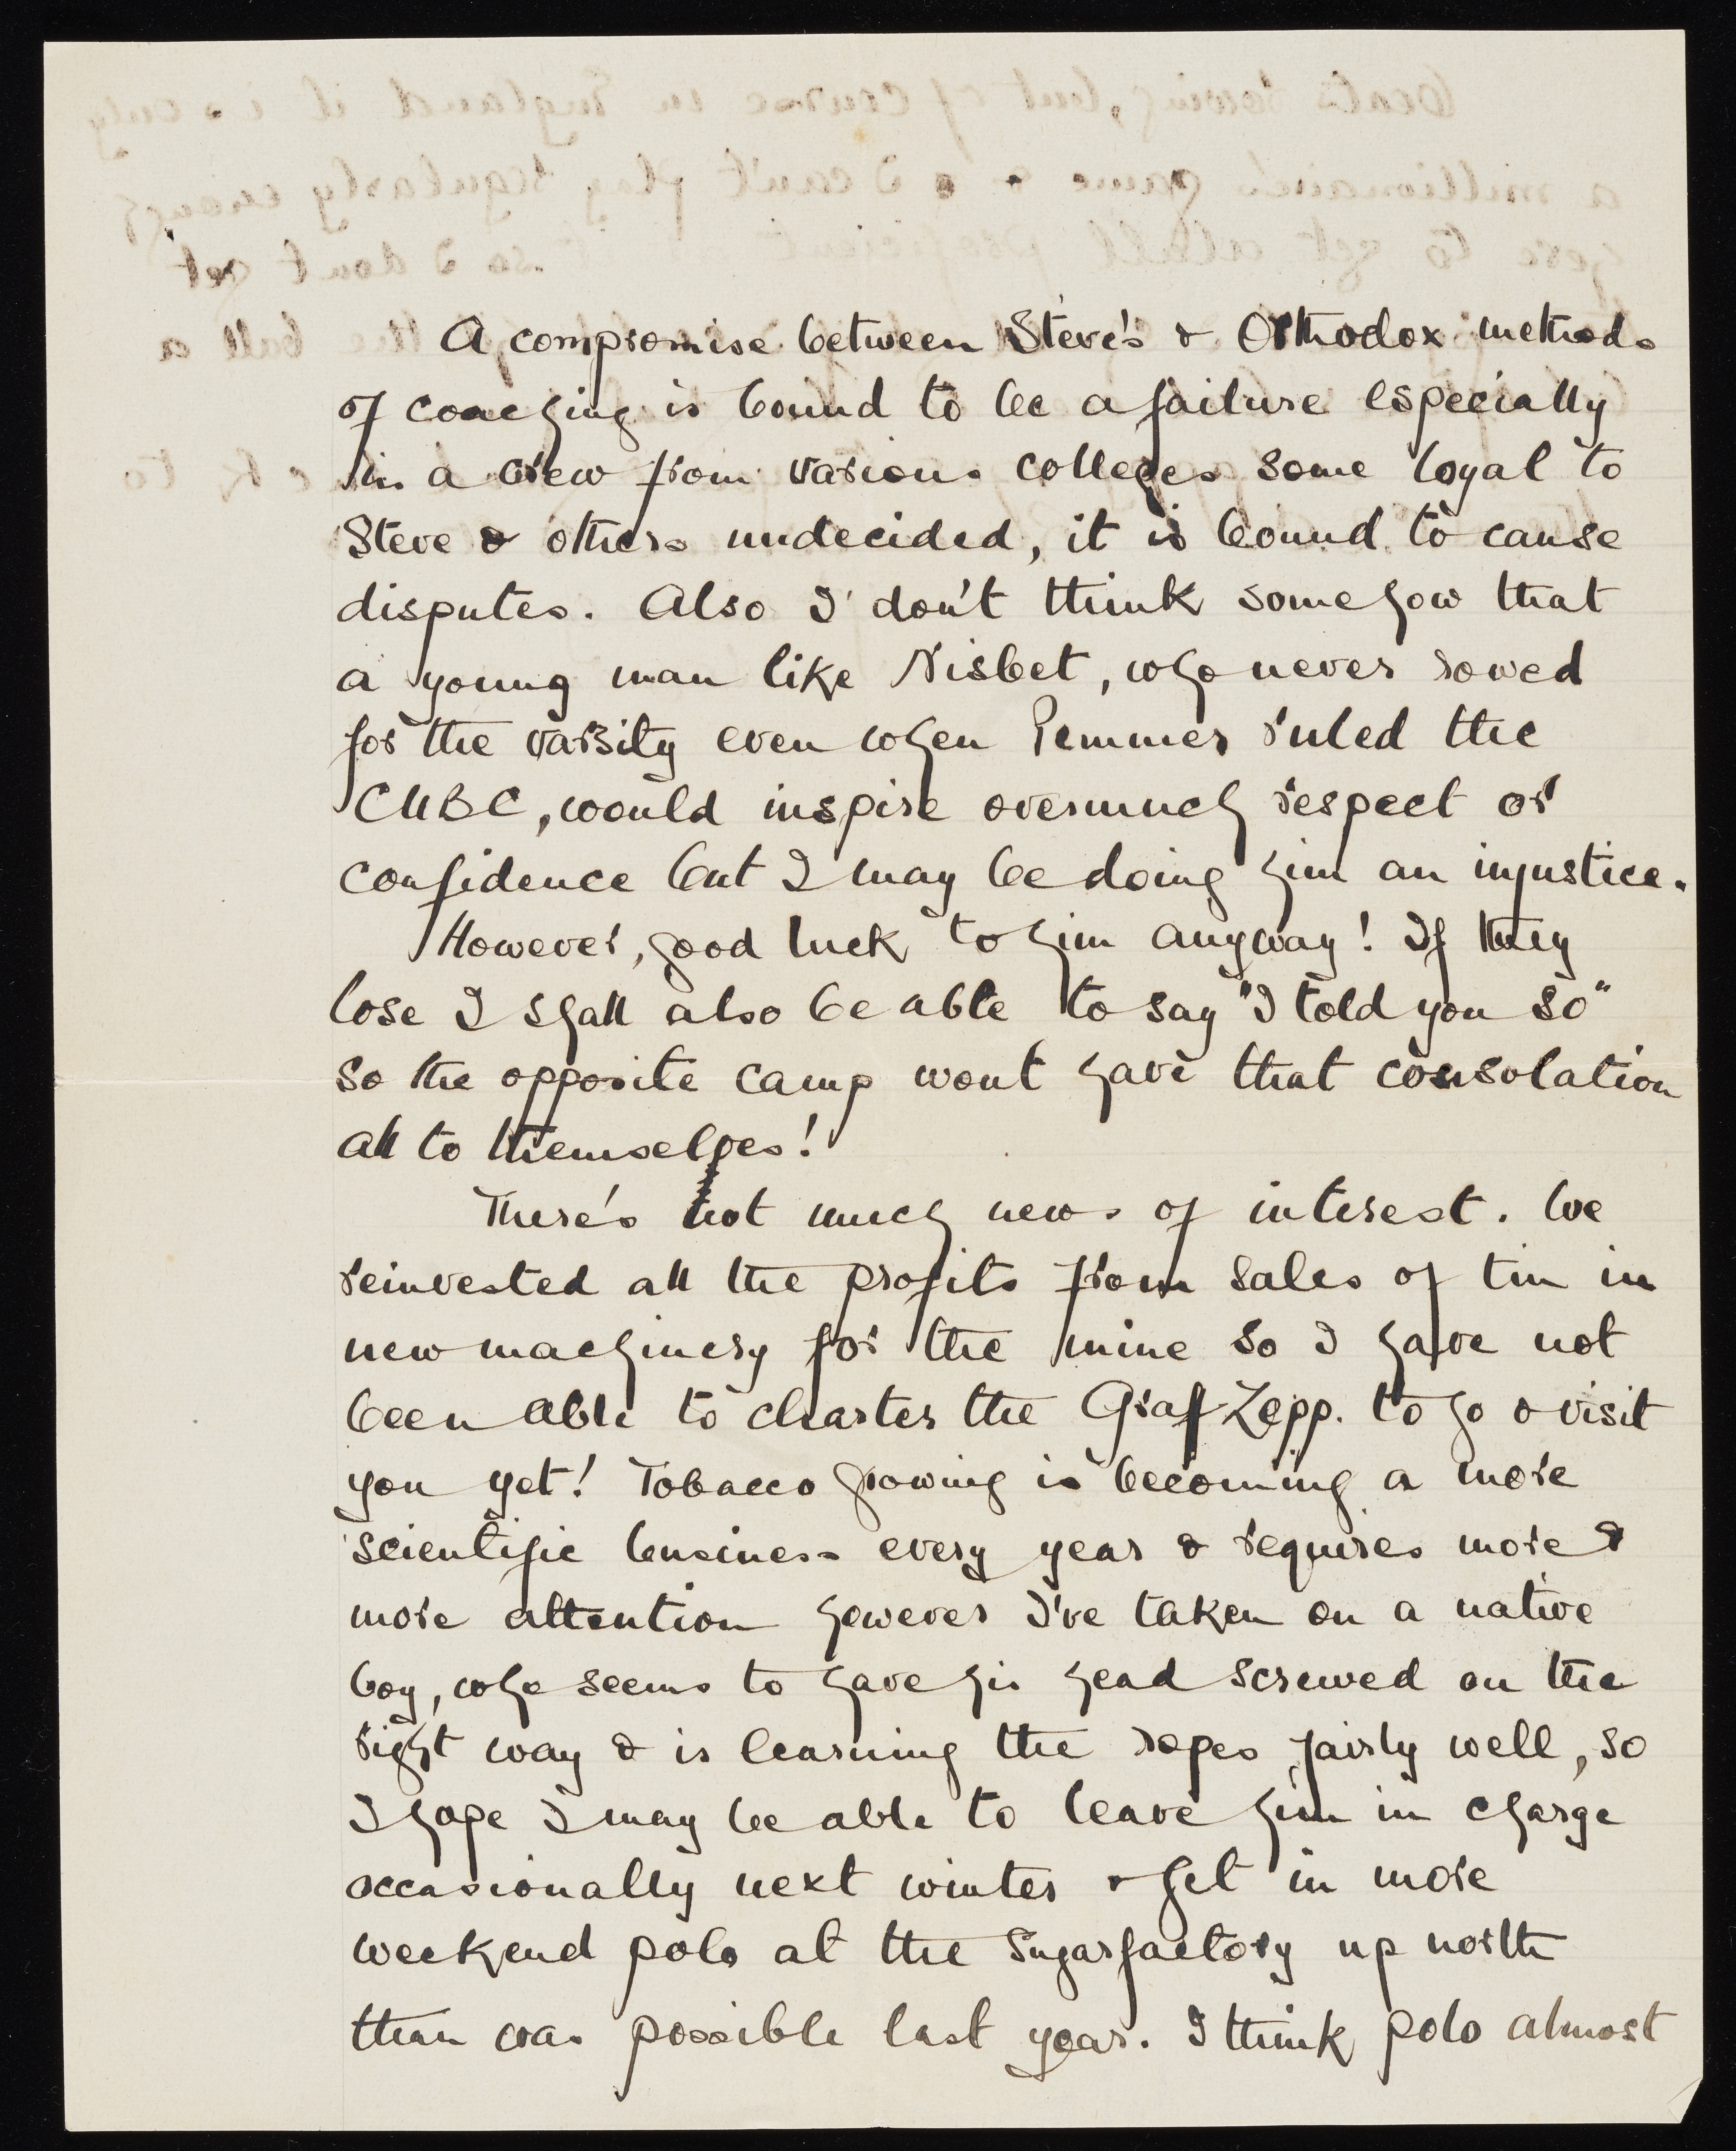 A compromise between Steve's & Orthodox methods
of coaching is bound to be a failure especially
in a crew from various colleges some loyal to
Steve & others undecided, it is bound to cause
disputes. Also I don't think somehow that
a young man like Nisbet, who never rowed
for the varsity even when Pemmer ruled the
CUBC, would inspire overmuch respect or
confidence but I may be doing him an injustice.
However, good luck to him anyway! If they
lose I shall also be able to say "I told you so"
so the opposite camp wont have that consolation
all to themselves!
There's not much news of interest. We
reinvested all the profits from sales of tin in
new machinery for the mine so I have not
been able to charter the Graf Zepp. to go & visit
you yet! Tobacco growing is becoming a more
scientific business every year & requires more &
more attention however I've taken on a native
boy, who seems to have his head screwed on the
right way & is learning the ropes fairly well, so
I hope I may be able to leave him in charge
occasionally next winter & get in more
weekend polo at the Sugarfactory up north
than was possible last year. I think polo almost